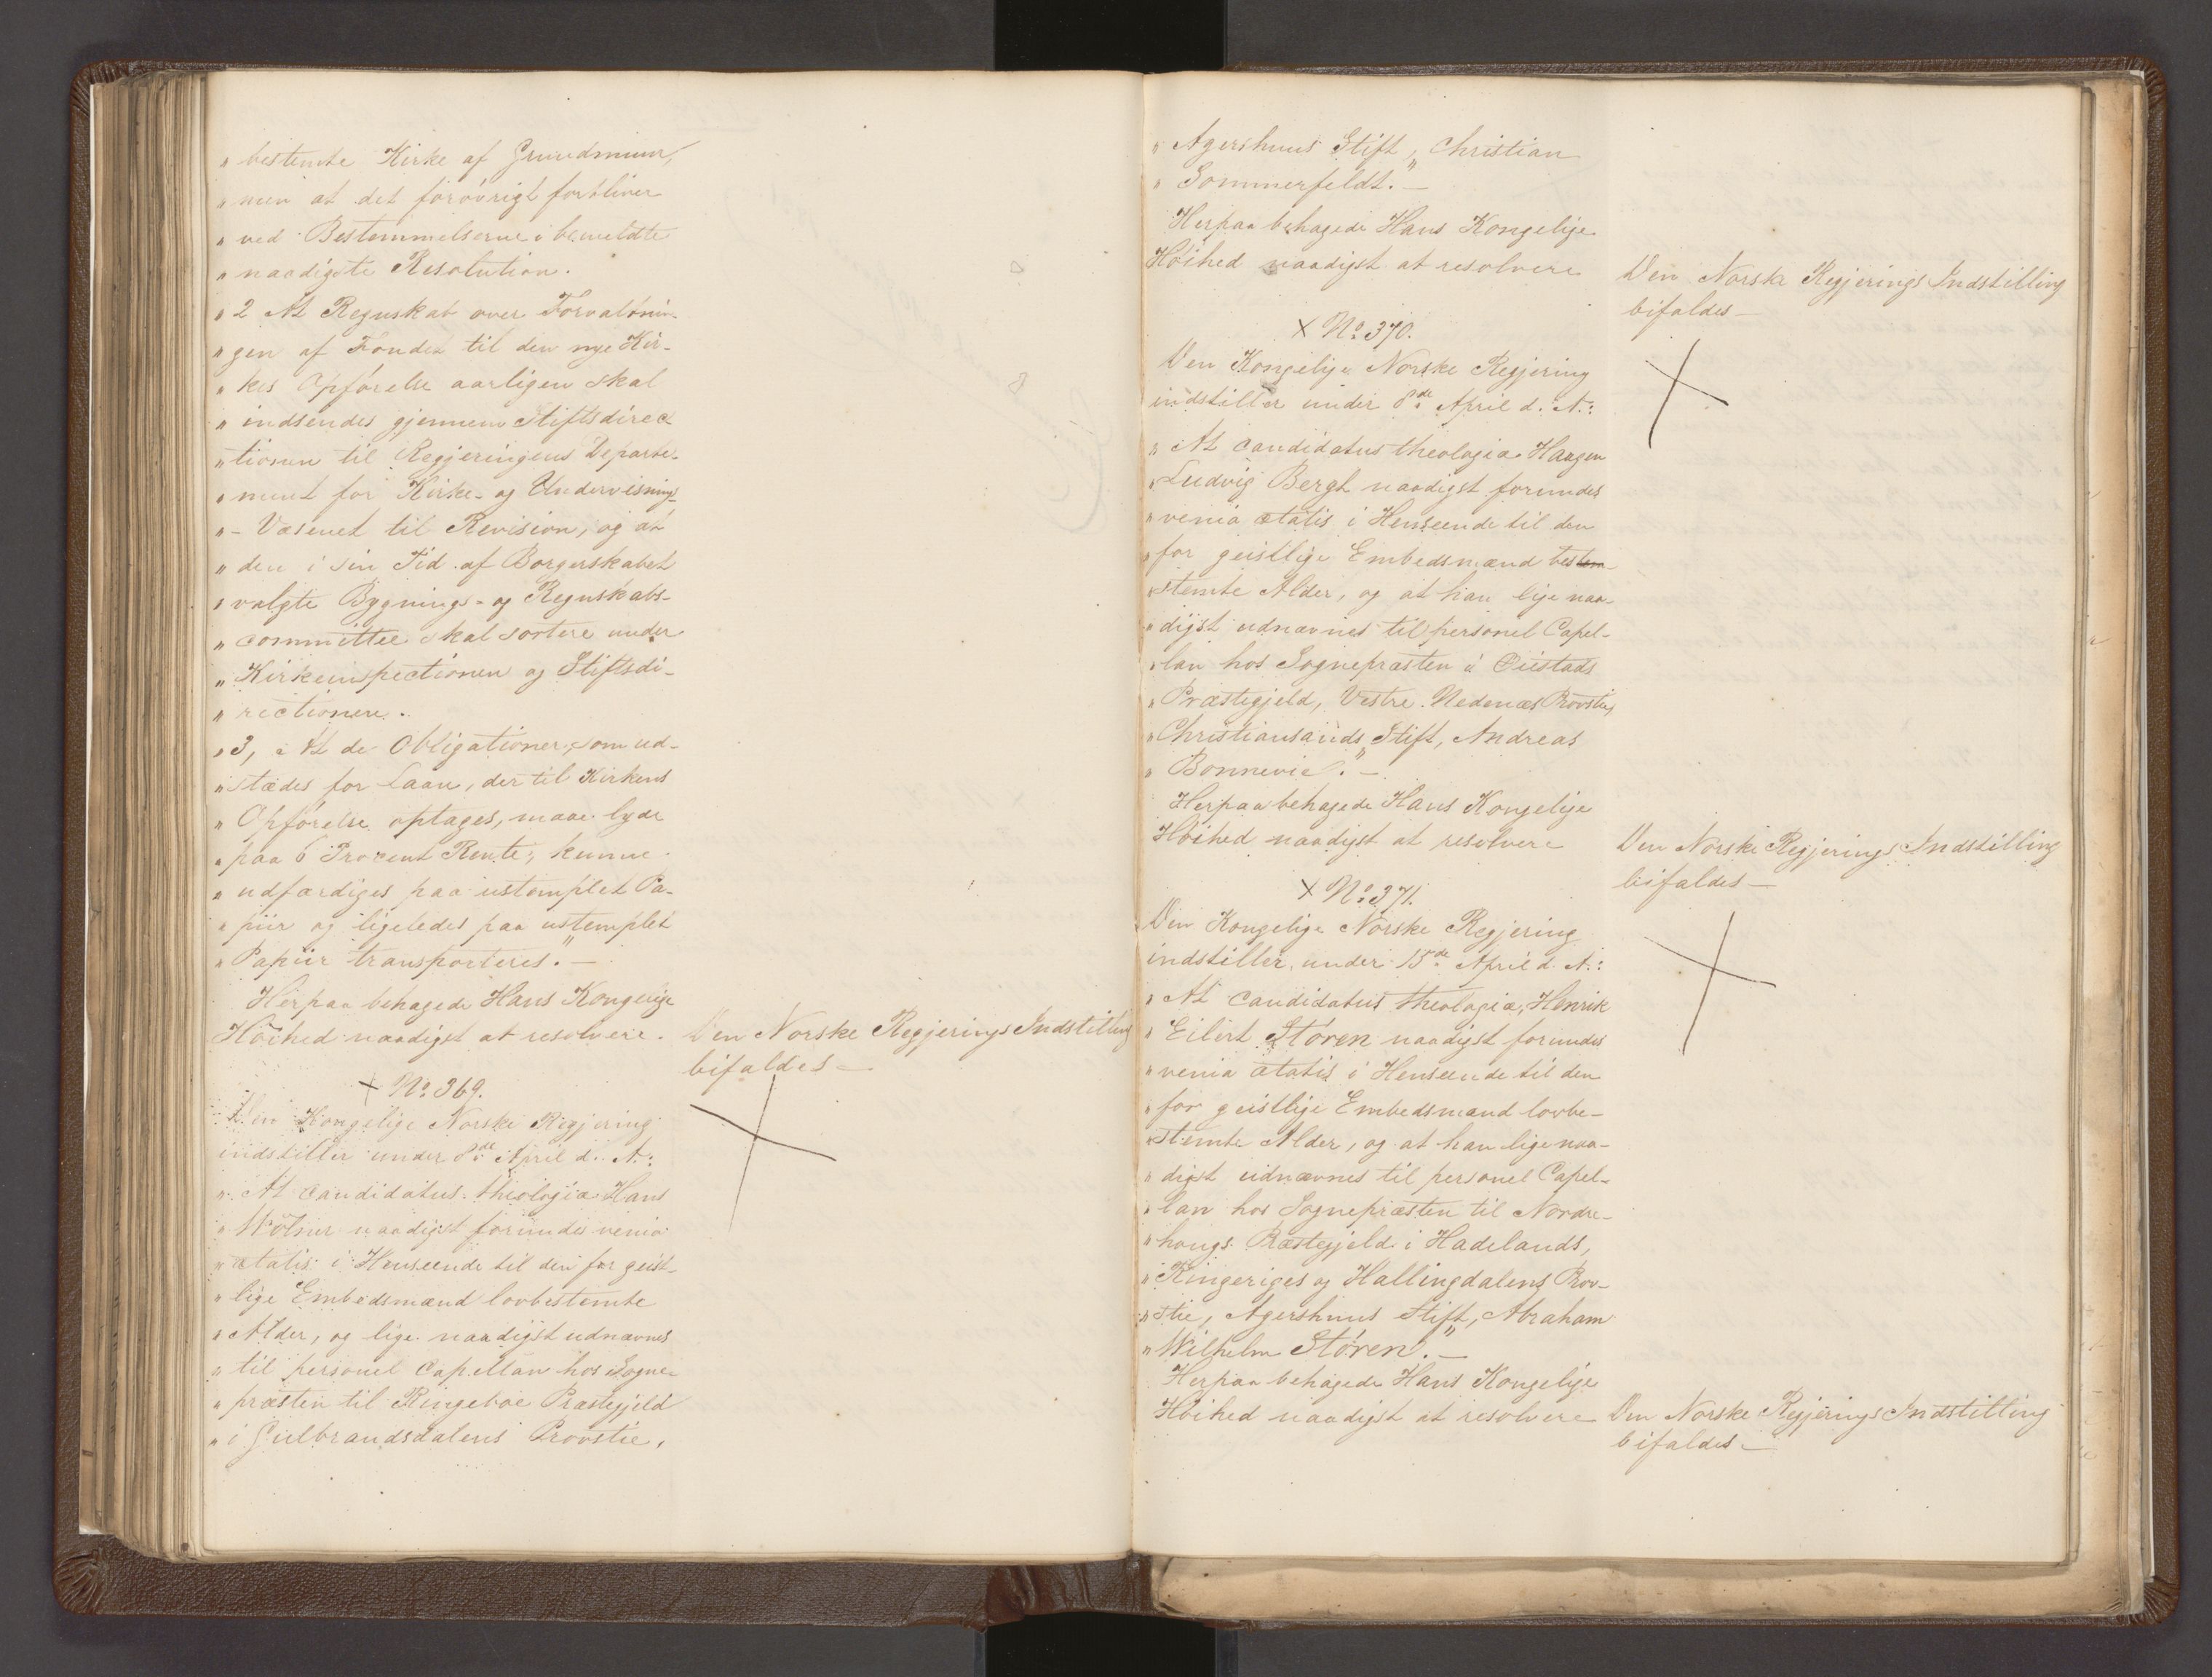 „ bestemte Kirke af Grundmuur,
„ men at det forøvrigt forbliver
„ ved Bestemmelserne i bemeldte
„ naadigste Resolution.
„ 2 At Regnskab over Forvaltnin-
„ gen af Fondet til den nye Kir-
„ kes Opførelse aarligen skal
„ indsendes gjennem Stiftsdirec
„ tionen til Regjeringens Departe-
„ ment for Kirke- og Undervisnings
„ - Væsenet til Revision, og at
„ den i sin Tid af Borgerskabet
„ valgte Bygnings- og Regnskabs-
„ committee skal sortere under
„ Kirkeinspectionen og Stiftsdi-
„ rectionen.
„ 3, At de Obligationer, som ud-
„ stædes for Laan, der til Kirkens
„ Opførelse optages, maae lyde
„ paa 6 Procent Rente, kunne
„ udfærdiges paa ustemplet Pa-
„ piir og ligeledes paa ustemplet
„ Papiir transporteres." —
Herpaa behagede Hans Kongelige
Høihed naadigst at resolvere.
Den Norske Regjerings Indstilling
bifaldes —
+ No. 369.
Den Kongelige Norske Regjering
indstiller under 8de April d. A.:
„ At candidatus theologiæ Hans
„ naadigst forundes venia
„ ætatis i Henseende til den for geist-
„ lige Embedsmænd lovbestemte
„ Alder, og lige naadigst udnævnes
„ til personel Capellan hos Sogne-
„ præsten til Ringeboe Præstegjeld
„ i Gulbrandsdalens Provstie,
„ Agershuus Stift, Christian
„ Sommerfeldt." —
Herpaa behagede Hans Kongelige
Høihed naadigst at resolvere
Den Norske Regjerings Indstilling
bifaldes —
+ No. 370.
Den Kongelige Norske Regjering
indstiller under 8de April d. A.:
„ At candidatus theologiæ Haagen
„ Ludvig Bergh naadigst forundes
„ venia ætatis i Henseende til den
„ for geistlige Embedsmænd bestem-
„ stemte Alder, og at han lige naa-
„ digst udnævnes til personel Capel-
„ lan hos Sognepræsten i Øiestads
„ Præstegjeld, Vestre Nedenæs Provstie,
„ Christiansands Stift, Andreas
„ Bonnevie." —
Herpaa behagede Hans Kongelige
Høihed naadigst at resolvere
Den Norske Regjerings Indstilling
bifaldes —
+ No. 371.
Den Kongelige Norske Regjering
indstiller under 15de April d. A.:
„ At candidatus theologiæ, Henrik
„ Eilert Støren naadigst forundes
„ venia ætatis i Henseende til den
„ for geistlige Embedsmænd lovbe-
„ stemte Alder, og at han lige naa-
„ digst udnævnes til personel Capel-
„ lan hos Sognepræsten til Nordre-
„ hougs Præstegjeld i Hadelands,
„ Ringeriges og Hallingdalens Prov-
„ stie, Agershuus Stift, Abraham
„ Wilhelm Støren." —
Herpaa behagede Hans Kongelige
Høihed naadigst at resolvere
Den Norske Regjerings Indstilling
bifaldes —